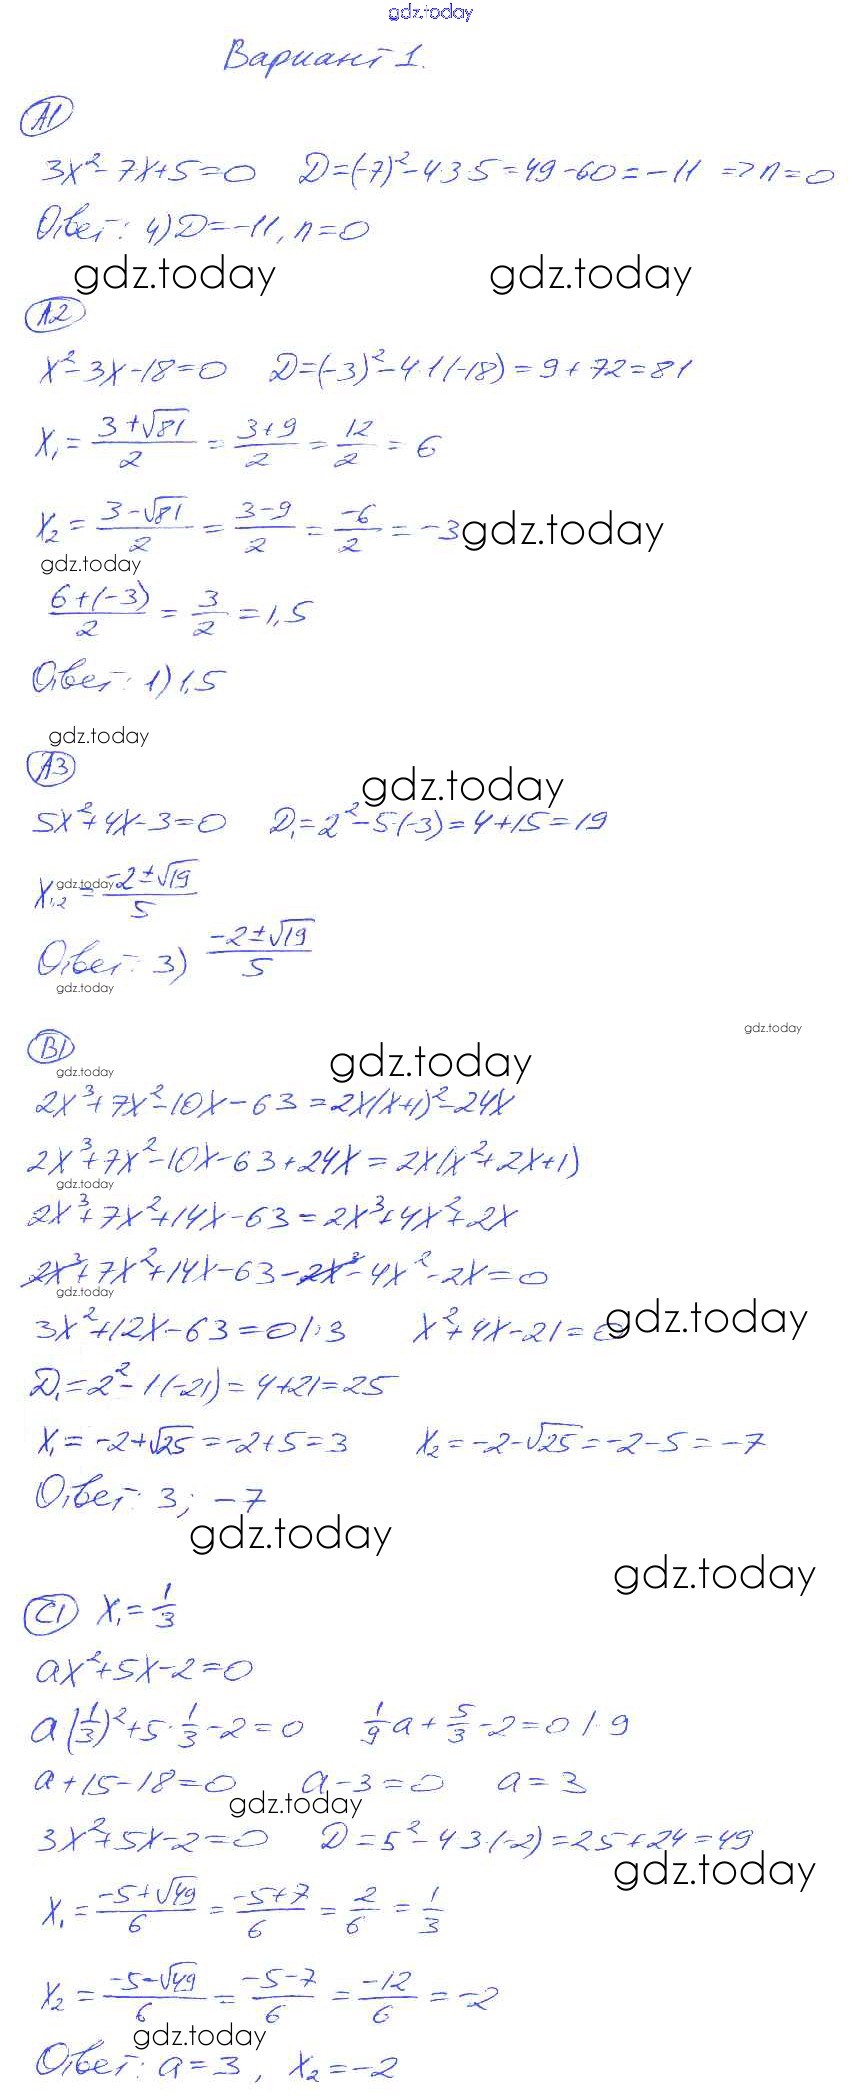 gdz.today
Вариант 1.
А1
3x²-7x+5=0 D=(-7)²-4·3·5=49-60=-11 => n=0
Ответ: 4) D=-11, n=0
gdz.today gdz.today
А2
x²-3x-18=0 D=(-3)²-4·1·(-18)=9+72=81
x₁=(3+√81)/2=(3+9)/2=12/2=6
x₂=(3-√81)/2=(3-9)/2=-6/2=-3 gdz.today
gdz.today
(6+(-3))/2=3/2=1,5
Ответ: 1) 1,5
gdz.today
А3
gdz.today
5x²+4x-3=0 D₁=2²-5·(-3)=4+15=19
x₁,₂=(-2±√19)/5 gdz.today
Ответ: 3) (-2±√19)/5
gdz.today
gdz.today
В1
gdz.today gdz.today
2x³+7x²-10x-63=2x(x+1)²-24x
2x³+7x²-10x-63+24x=2x(x²+2x+1)
gdz.today
2x³+7x²+14x-63=2x³+4x²+2x
2x³+7x²+14x-63-2x³-4x²-2x=0
gdz.today
3x²+12x-63=0 |:3 x²+4x-21=0 gdz.today
D₁=2²-1·(-21)=4+21=25
x₁=-2+√25=-2+5=3 x₂=-2-√25=-2-5=-7
Ответ: 3; -7
gdz.today
gdz.today
С1 x₁=1/3
ax²+5x-2=0
a(1/3)²+5·1/3-2=0 1/9a+5/3-2=0 |·9
a+15-18=0 a-3=0 a=3
gdz.today
3x²+5x-2=0 D=5²-4·3·(-2)=25+24=49
gdz.today
x₁=(-5+√49)/6=(-5+7)/6=2/6=1/3
x₂=(-5-√49)/6=(-5-7)/6=-12/6=-2
gdz.today
Ответ: a=3, x₂=-2